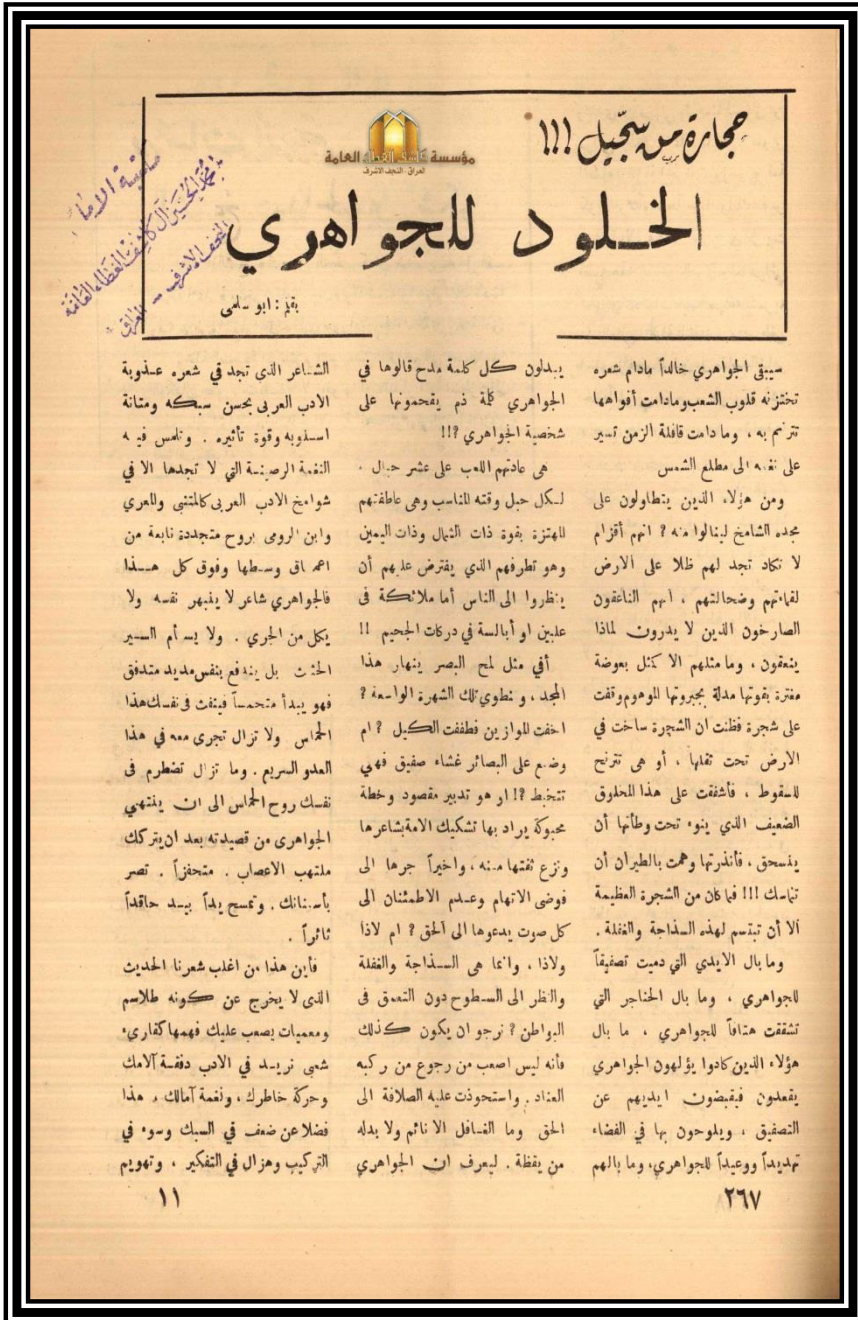 حجارة من سجّيل !!!
مؤسسة كاشف الغطاء العامة
العراق - النجف الاشرف
الخلود للجواهري
بقلم : ابو سلمى
مكتبة الامام
محمد الحسين آل كاشف الغطاء العامة
النجف الاشرف - العراق
سيبقى الجواهري خالداً مادام شعره
تختزنه قلوب الشعب ومادامت أفواهها
تترنم به ، وما دامت قافلة الزمن تسير
على نغمه الى مطلع الشمس
ومن هؤلاء الذين يتطاولون على
مجده الشامخ لينالوا منه ? انهم أقزام
لا نكاد تجد لهم ظلا على الارض
لقماءتهم وضحالتهم ، انهم الناعقون
الصارخون الذين لا يدرون لماذا
ينعقون ، وما مثلهم الا كمثل بعوضة
مغترة بقوتها مدلة بجبروتها الموهوم وقفت
على شجرة فظنت ان الشجرة ساخت في
الارض تحت ثقلها ، أو هى تترنح
للسقوط ، فأشفقت على هذا المخلوق
الضعيف الذي ينوء تحت وطأتها أن
ينسحق ، فأنذرتها وهمت بالطيران أن
تماسك !!! فما كان من الشجرة العظيمة
ألا أن تبتسم لهذه السذاجة والغفلة .
وما بال الايدي التي دميت تصفيقاً
للجواهري ، وما بال الحناجر التي
تشققت هتافاً للجواهري ، ما بال
هؤلاء الذين كادوا يؤلهون الجواهري
يقعدون فيقبضون ايديهم عن
التصفيق ، ويلوحون بها في الفضاء
تهديداً ووعيداً للجواهري، وما بالهم
يبدلون كل كلمة مدح قالوها في
الجواهري كلمة ذم يقحمونها على
شخصية الجواهري ?!!
هى عادتهم اللعب على عشر حبال .
لكل حبل وقته المناسب وهى عاطفتهم
المهتزة بقوة ذات الشمال وذات اليمين
وهو تطرفهم الذي يفترض عليهم أن
ينظروا الى الناس أما ملائكة فى
عليين او أبالسة في دركات الجحيم !!
أفي مثل لمح البصر ينهار هذا
المجد ، وتطوي تلك الشهرة الواسعة ?
اخفت الموازين فطففت الكيل ? ام
وضع على البصائر غشاء صفيق فهي
تتخبط ?! او هو تدبير مقصود وخطة
محبوكة يراد بها تشكيك الامة بشاعرها
ونزع ثقتها منه ، واخيراً جرها الى
فوضى الاتهام وعدم الاطمئنان الى
كل صوت يدعوها الى الحق ? ام لاذا
ولاذا ، وانما هى السذاجة والغفلة
والنظر الى السطوح دون التعمق فى
البواطن ? نرجو ان يكون كذلك
فأنه ليس اصعب من رجوع من ركبه
العناد . واستحوذت عليه الصلافة الى
الحق وما الغافل الا نائم ولا بدله
من يقظة . ليعرف ان الجواهري
الشاعر الذى تجد في شعره عذوبة
الادب العربى بحسن سبكه ومتانة
اسلوبه وقوة تأثيره . وتلمس فيه
النغمة الرصينة التي لا تجدها الا في
شوامخ الادب العربى كالمتنبي والمعري
وابن الرومى بروح متجددة نابعة من
اعماق وسطها وفوق كل هذا
فالجواهري شاعر لا ينبهر نفسه ولا
يكل من الجري . ولا يسأم السير
الحثيث بل يندفع بنفس مديد متدفق
فهو يبدأ متحمساً فينفث فى نفسك هذا
الحماس ولا تزال تجرى معه في هذا
العدو السريع . وما تزال تضطرم فى
نفسك روح الحماس الى ان ينتهي
الجواهرى من قصيدته بعد ان يتركك
ملتهب الاعصاب . متحفزاً . تصر
بأسنانك . وتمسح يداً بيد حاقداً
ثائراً .
فأين هذا من اغلب شعرنا الحديث
الذى لا يخرج عن كونه طلاسم
ومعميات يصعب عليك فهمها كقاريء
شعبي تريد في الادب دفقة آلامك
وحركة خاطرك ، ونغمة آمالك ، هذا
فضلا عن ضعف في السبك وسوء في
التركيب وهزال في التفكير ، وتهويم
١١
٢٦٧